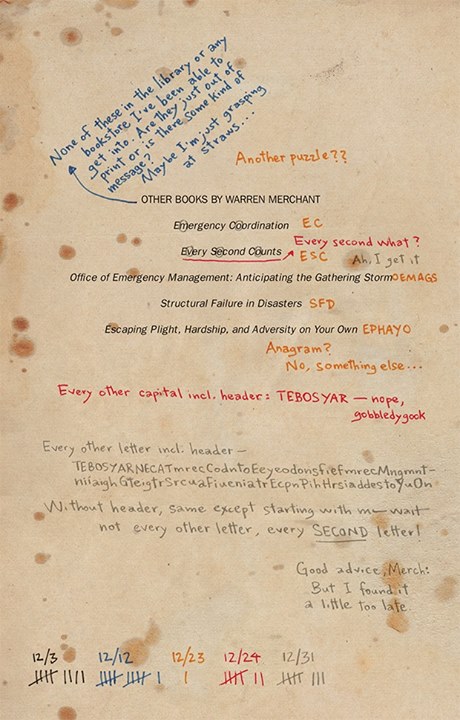 None of these in the library or any
bookstore I've been able to
get into. Are they just out of
print or is there some kind of
message?
Maybe I'm just grasping
at straws...
Another puzzle??
OTHER BOOKS BY WARREN MERCHANT
Emergency Coordination EC
Every second what?
Every Second Counts ESC Ah, I get it
Office of Emergency Management: Anticipating the Gathering Storm OEMAGS
Structural Failure in Disasters SFD
Escaping Plight, Hardship, and Adversity on Your Own EPHAYO
Anagram?
No, something else...
Every other capital incl. header: TEBOSYAR — nope,
gobbledygook
Every other letter incl. header –
TEBOSYARNECATmrecCodntoEeyeodonsfiefmrecMngmnt-
niiaighGTeigtrSrcuaFiueniatrEcpnPihHrsiaddestoYuOn
Without header, same except starting with m — wait
not every other letter, every SECOND letter!
Good advice, Merch.
But I found it
a little too late.
12/3 12/12 12/23 12/24 12/31